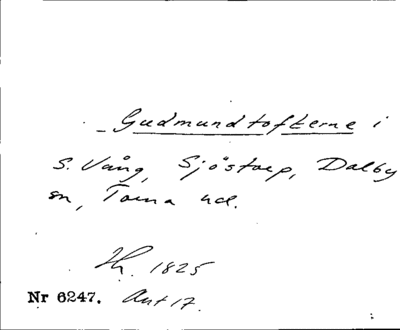 Gudmundtofterne i
S. Vång, Sjöstorp, Dalby
sn, Torna hd.
Hr. 1825
Nr 6247. Ant 17.